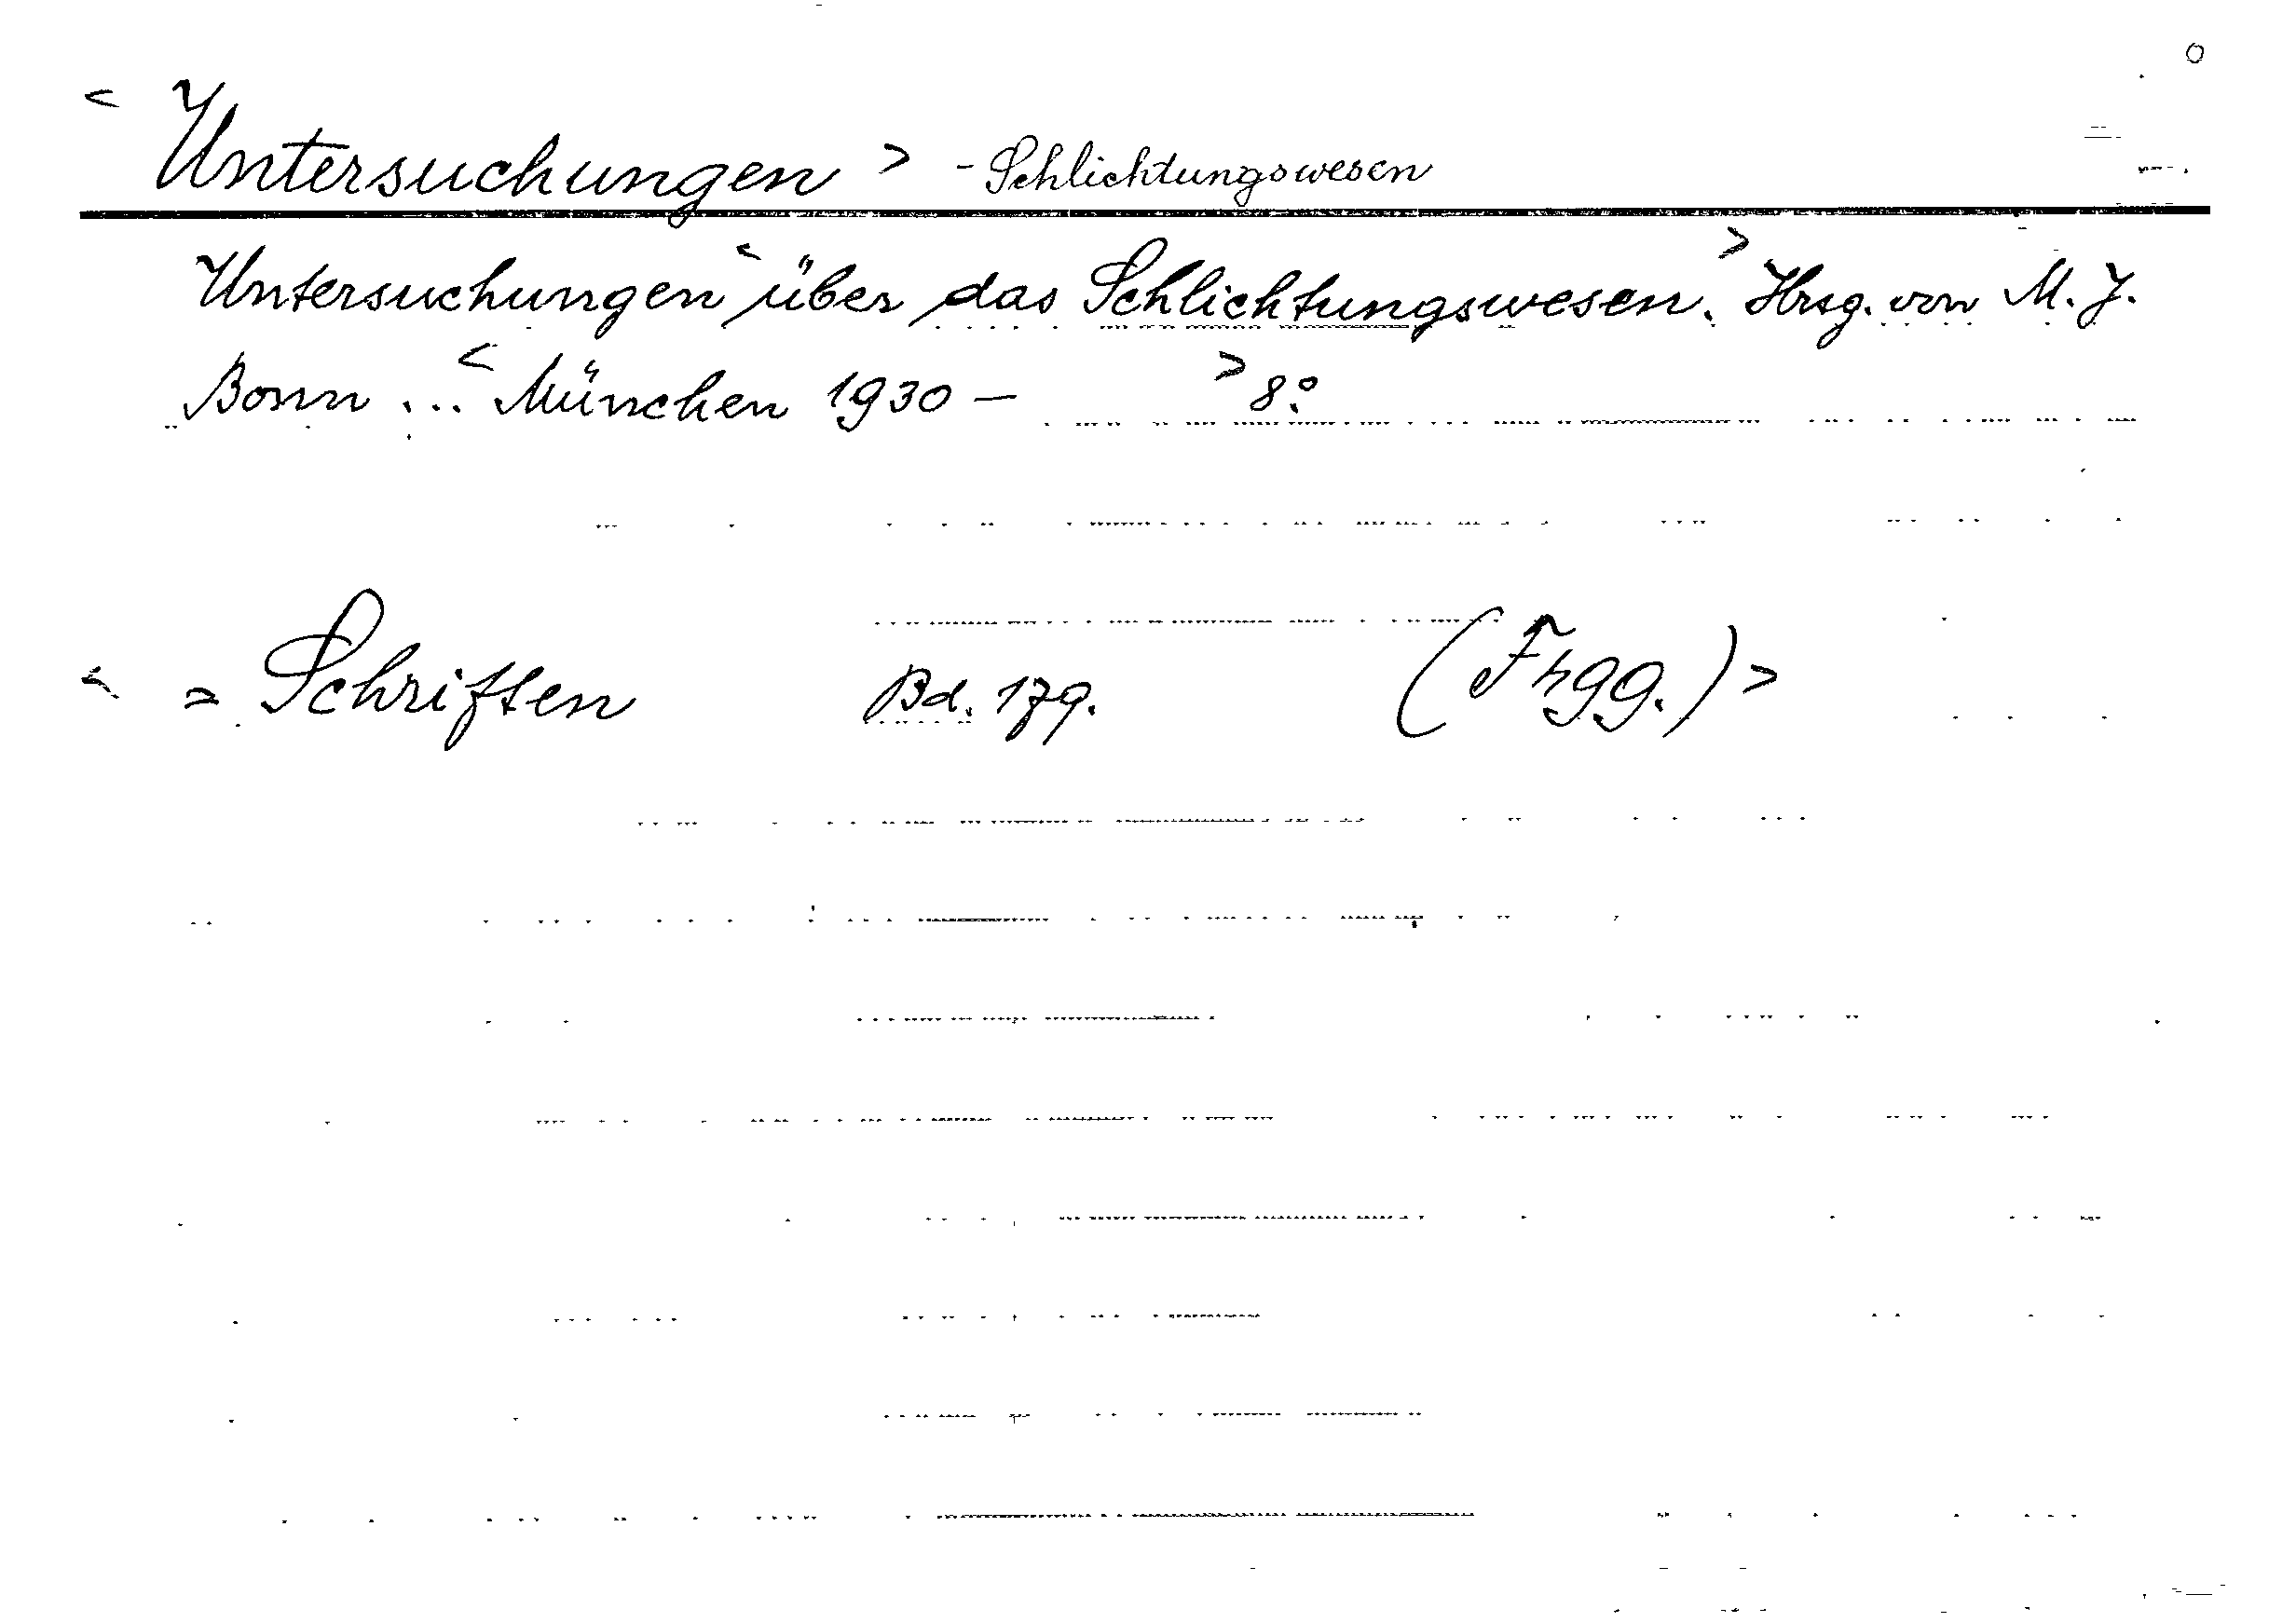 < Untersuchungen > - Schlichtungswesen
Untersuchungen < über das Schlichtungswesen. > Hrsg. von M. J.
Bonn ... < München 1930 - > 8°.
< = Schriften Bd. 179. (Fhgg.) >